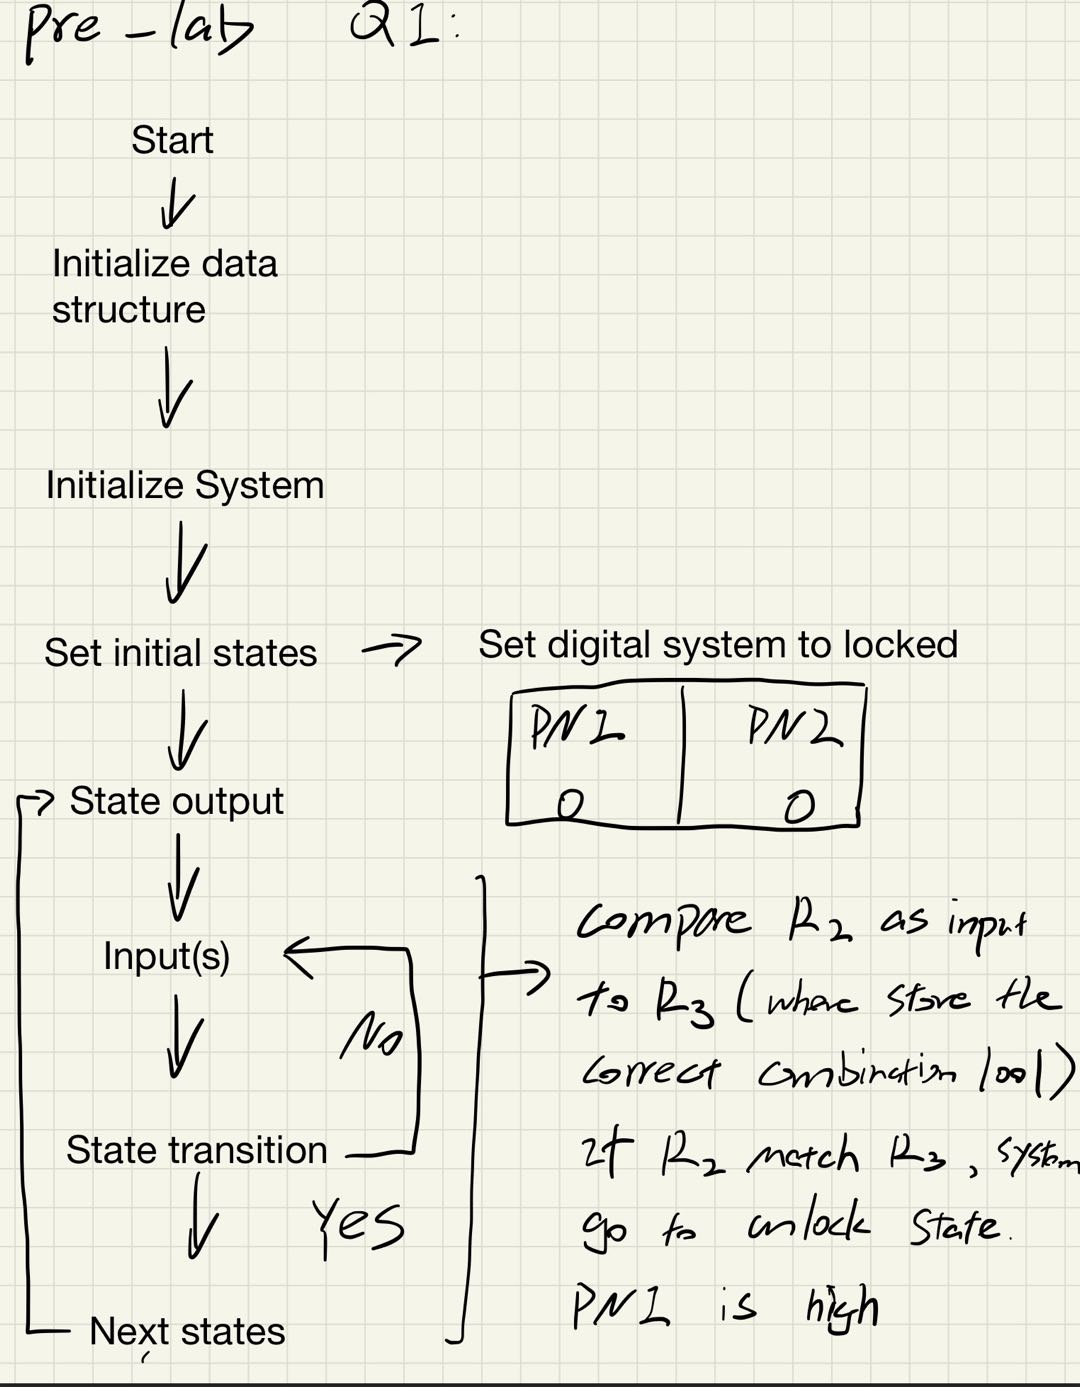 Pre-lab Q1:
Start
Initialize data
structure
Initialize System
Set initial states
Set digital system to locked
PN1 PN2
0 0
State output
Input(s)
No
State transition
Yes
Next states
Compare R2 as input
to R3 (where store the
correct combination 1001)
If R2 match R3, system
go to unlock state.
PN1 is high